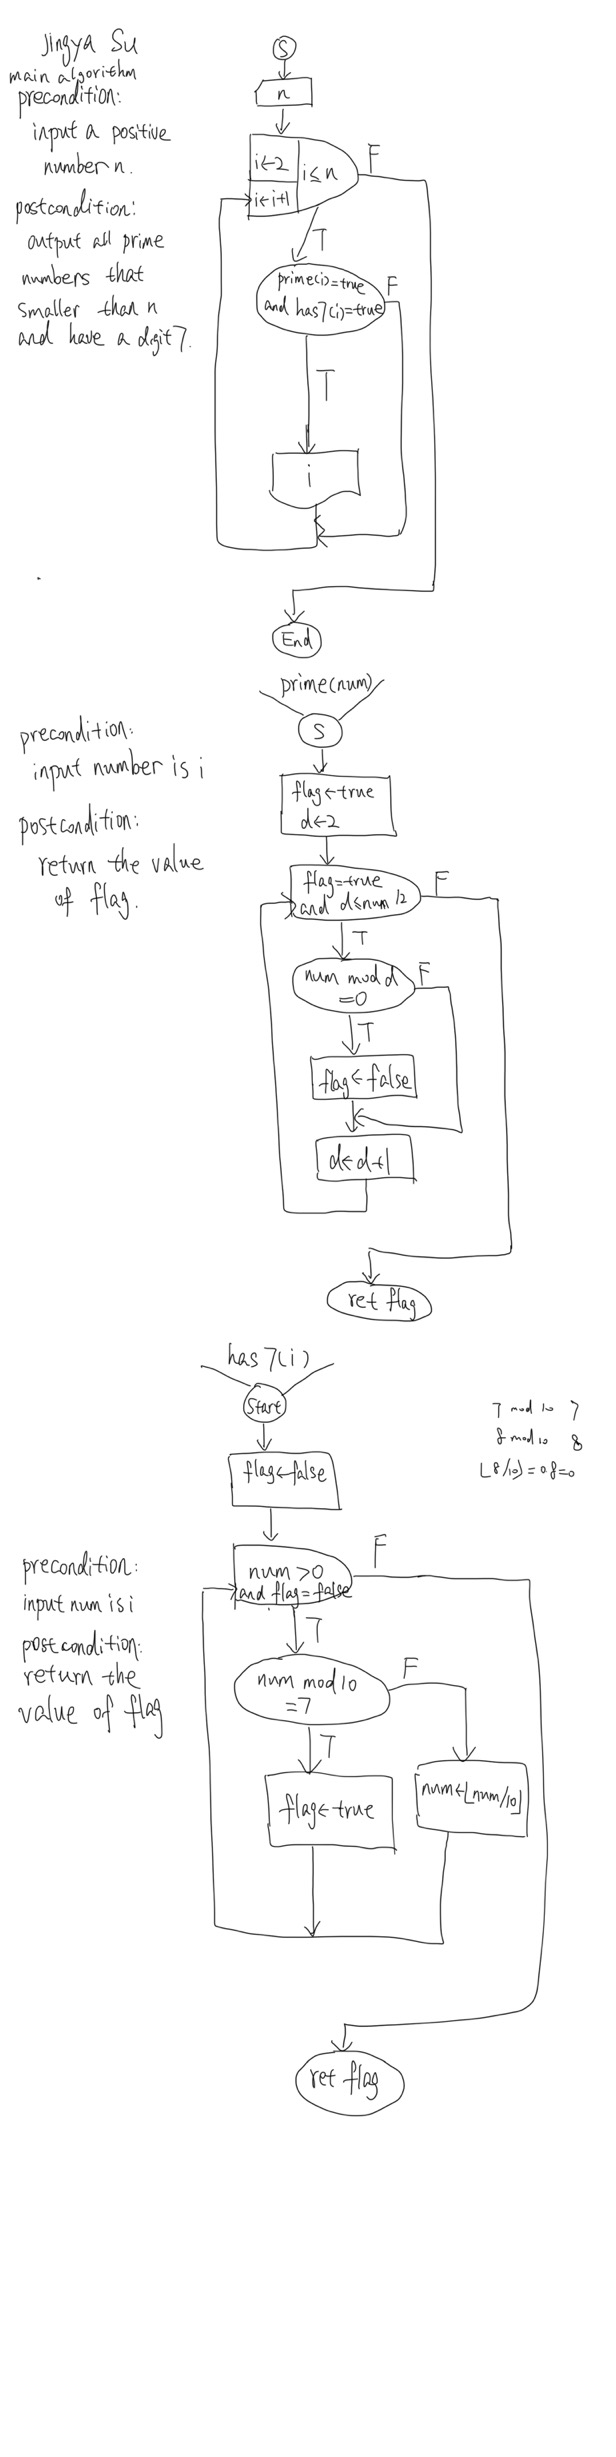 Jingya Su
main algorithm
precondition:
input a positive
number n.
postcondition:
output all prime
numbers that
smaller than n
and have a digit 7.
S
n
i←2
i←i+1
i≤n
F
T
prime(i)=true
and has7(i)=true
F
T
i
End
prime(num)
S
precondition:
input number is i
postcondition:
return the value
of flag.
flag←true
d←2
flag=true
and d≤num/2
F
T
num mod d
=0
F
T
flag←false
d←d+1
ret flag
has7(i)
Start
7 mod 10 7
8 mod 10 8
⌊8/10⌋=0.8=0
flag←false
precondition:
input num is i
postcondition:
return the
value of flag
num>0
and flag=false
F
T
num mod 10
=7
F
T
flag←true
num←⌊num/10⌋
ret flag